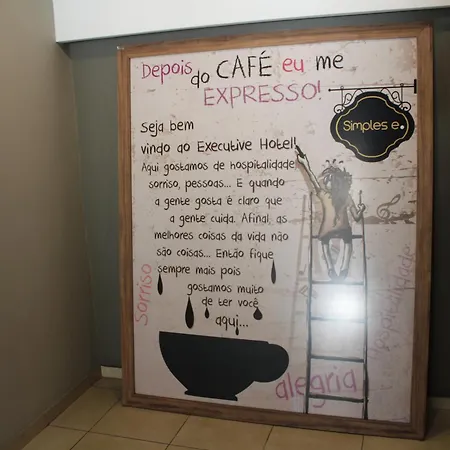 Depois do CAFÉ eu me
EXPRESSO!
Simples e.
Seja bem
vindo ao Executive Hotel!
Aqui gostamos de hospitalidade,
sorriso, pessoas... E quando
a gente gosta é claro que
a gente cuida. Afinal, as
melhores coisas da vida não
são coisas... Então fique
sempre mais pois
gostamos muito
de ter você
aqui...
sorriso
alegria
hospitalidade